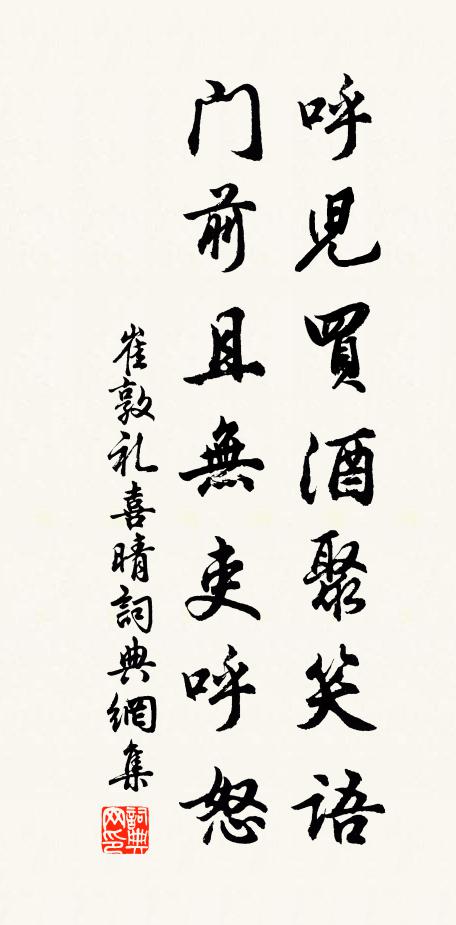 呼児買酒聚笑語
門前且無吏呼怒
崔敦礼喜晴詞典網集
詞典網印